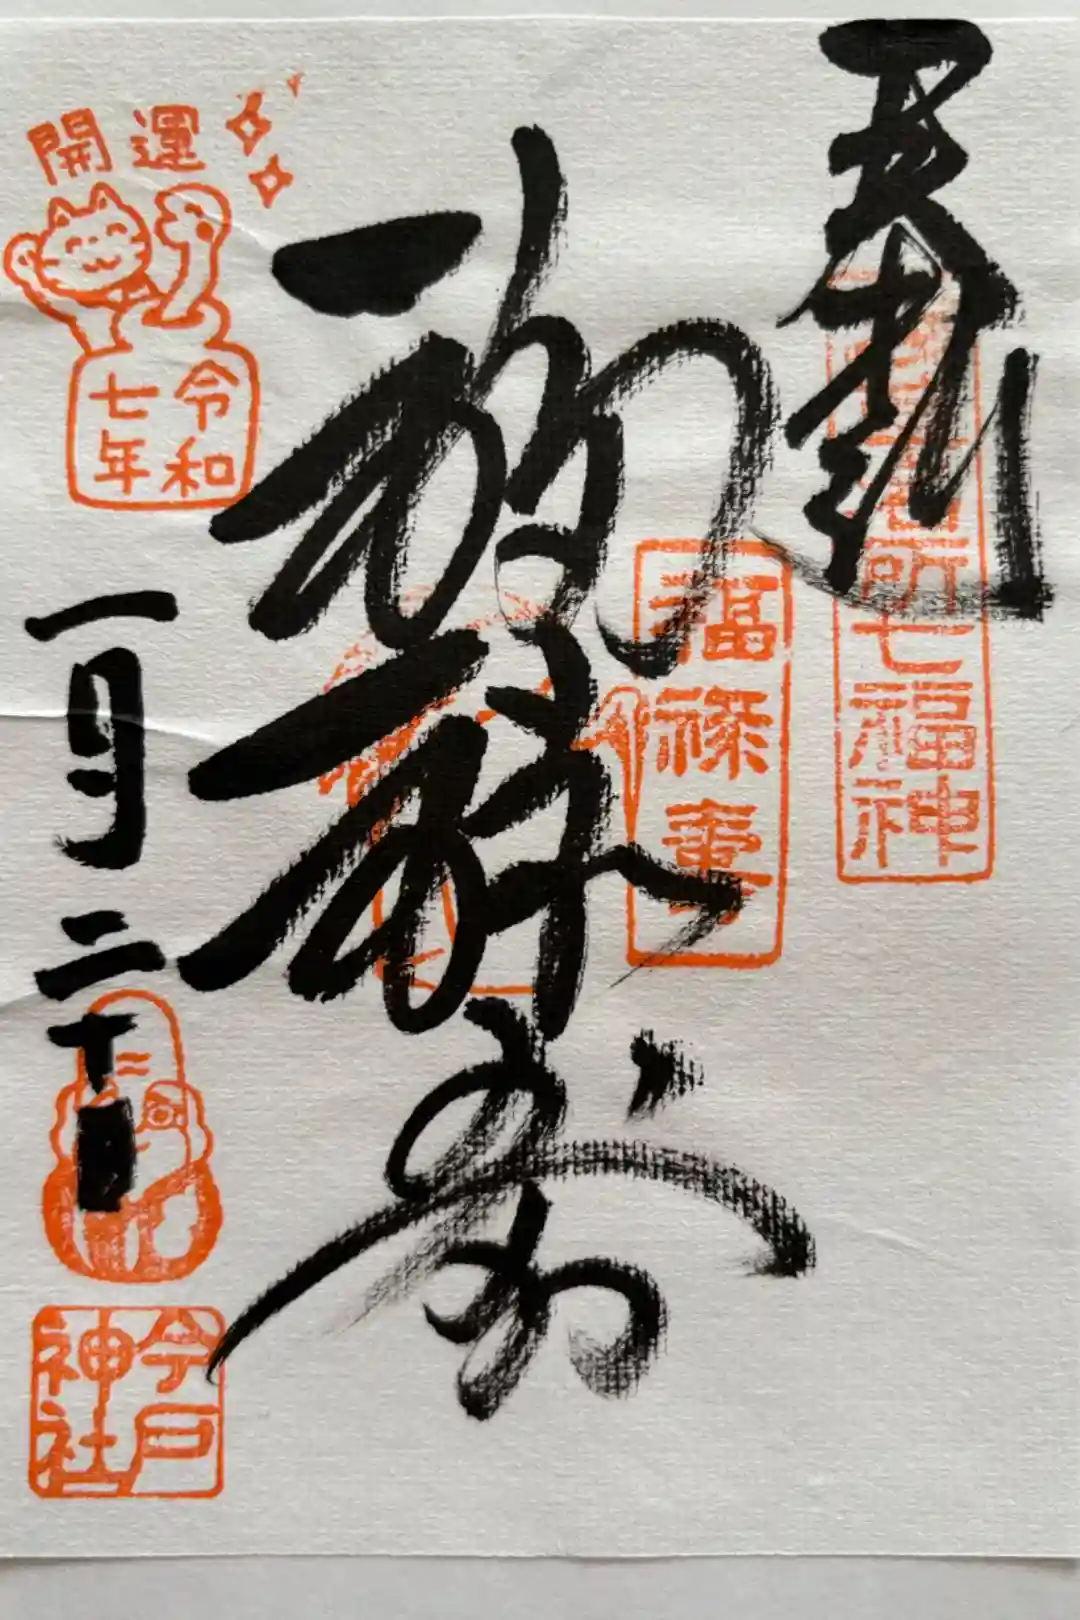 奉拝
浅草名所七福神
福禄寿
福禄寿
開運
令和
七年
一月二十日
今戸
神社